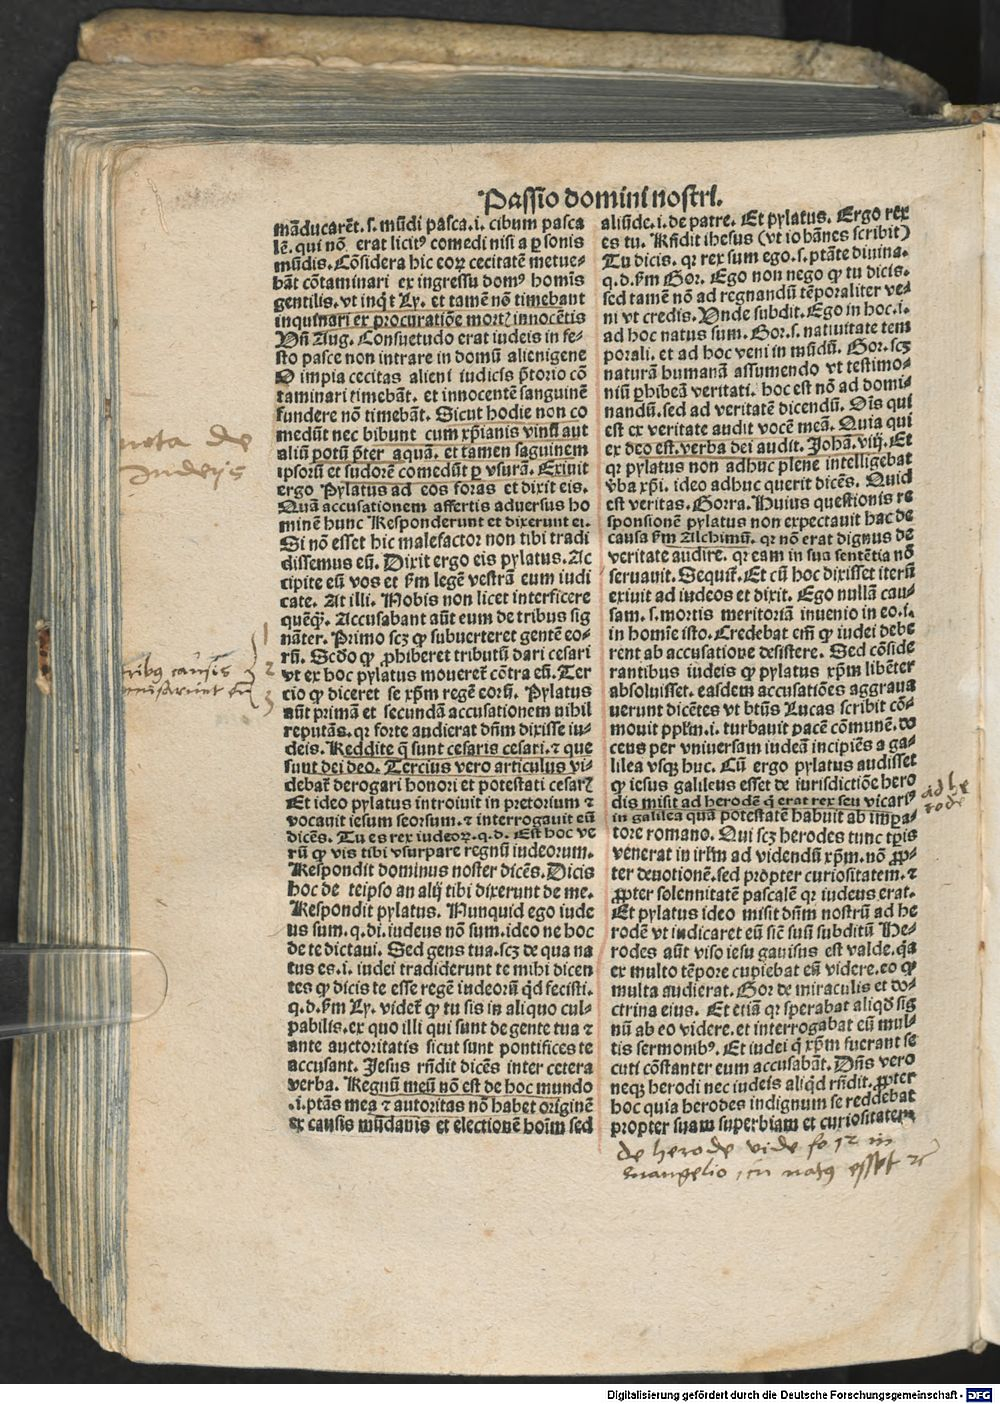 Passio domini nostri.
māducarēt. s. mūdi pasca. i. cibum pasca
lē. qui nō erat licitꝰ comedi nisi a ꝑsonis
mūdis. Cōsidera hic eoꝝ cecitatē metue-
bāt cōtaminari ex ingressu domꝰ homīs
gentilis. vt inq̄t Ly. et tamē nō timebant
inquinari ex procuratiōe mortꝭ innocētis
Vn̄ Aug. Consuetudo erat iudeis in fe-
sto pasce non intrare in domū alienigene
O impia cecitas alieni iudicis p̄torio cō
taminari timebāt. et innocentē sanguinē
fundere nō timebāt. Sicut hodie non co
medūt nec bibunt cum xp̄ianis vinū aut
aliū potū p̄ter aquā. et tamen saguinem
ipsorū et sudorē comedūt ꝑ vsurā. Exiuit
ergo Pylatus ad eos foras et dixit eis.
Quā accusationem affertis aduersus ho
minē hunc Responderunt et dixerunt ei.
Si nō esset hic malefactor non tibi tradi
dissemus eū. Dixit ergo eis pylatus. Ac
cipite eū vos et ẜm legē vestrā eum iudi
cate. At illi. Nobis non licet interficere
quēq̄. Accusabant aūt eum de tribus sig
nāter. Primo scꝫ ꝙ subuerteret gentē eo-
rū. Scd̄o ꝙ ꝓhiberet tributū dari cesari
vt ex hoc pylatus mouereī cōtra eū. Ter
cio ꝙ diceret se xp̄m regē eorū. Pylatus
aūt primā et secundā accusationem nihil
reputās. qꝛ forte audierat dn̄m dixisse iu-
deis. Reddite q̄ sunt cesaris cesari. ⁊ que
sunt dei deo. Tercius vero articulus vi-
debaī derogari honori et potestati cesarꝭ
Et ideo pylatus introiuit in pretorium ⁊
vocauit iesum seorsum. ⁊ interrogauit eū
dicēs. Tu es rex iudeoꝝ. q. d. Est hoc ve
rū ꝙ vis tibi vsurpare regnū iudeorum.
Respondit dominus noster dicēs. Dicis
hoc de teipso an alij tibi dixerunt de me.
Respondit pylatus. Nunquid ego iude
us sum. q. di. iudeus nō sum. ideo ne hoc
de te dictaui. Sed gens tua. scꝫ de qua na
tus es. i. iudei tradiderunt te mihi dicen
tes ꝙ dicis te esse regē iudeorū q̇d fecisti.
q. d. ẜm Ly. videī ꝙ tu sis in aliquo cul-
pabilis. ex quo illi qui sunt de gente tua ⁊
ante auctoritatis sicut sunt pontifices te
accusant. Jesus rn̄dit dicēs inter cetera
verba. Regnū meū nō est de hoc mundo
.i. ptās mea ⁊ autoritas nō habet originē
ex causis mūdanis et electionē hoīm sed
aliūde. i. de patre. Et pylatus. Ergo rex
es tu. Rn̄dit ihesus (vt iohānes scribit)
Tu dicis. qꝛ rex sum ego. s. ptāte diuina.
q. d. ẜm Gor. Ego non nego ꝙ tu dicis.
sed tamē nō ad regnandū tēporaliter ve-
ni vt credis. Vnde subdit. Ego in hoc. i.
ad hoc natus sum. Gor. s. natiuitate tem
porali. et ad hoc veni in mūdū. Gor. scꝫ
naturā humanā assumendo vt testimo-
niū ꝑhibeā veritati. hoc est nō ad domi-
nandū. sed ad veritatē dicendū. Oīs qui
est ex veritate audit vocē meā. Quia qui
ex deo est. verba dei audit. Johā. viij. Et
qꝛ pylatus non adhuc plene intelligebat
v̄ba xp̄i. ideo adhuc querit dicēs. Quid
est veritas. Gorra. Huius questionis re
sponsionē pylatus non expectauit hac de
causa ẜm Alchimū. qꝛ nō erat dignus de
veritate audire. qꝛ eam in sua sentētia nō
seruauit. Sequiī. Et cū hoc dixisset iterū
exiuit ad iudeos et dixit. Ego nullā cau-
sam. s. mortis meritoriā inuenio in eo. i.
in homīe isto. Credebat em̄ ꝙ iudei debe
rent ab accusatione desistere. Sed cōside
rantibus iudeis ꝙ pylatus xp̄m libēter
absoluisset. easdem accusatiōes aggraua
uerunt dicētes vt btūs Lucas scribit cō-
mouit pp̄lm. i. turbauit pacē cōmunē. do
cens per vniuersam iudeā incipiēs a ga-
lilea vsqꝫ huc. Cū ergo pylatus audisset
ꝙ iesus galileus esset de iurisdictiōe hero
dis misit ad herodē q̇ erat rex seu vicariꝰ
in galilea quā potestatē habuit ab impa-
tore romano. Qui scꝫ herodes tunc tꝑis
venerat in irlm̄ ad videndū xp̄m. nō ꝓp-
ter deuotionē. sed propter curiositatem. ⁊
ꝓpter solennitatē pascalē qꝛ iudeus erat.
Et pylatus ideo misit dn̄m nostrū ad he
rodē vt iudicaret eū sic̄ suū subditū He-
rodes aūt viso iesu gauisus est valde. q̄a
ex multo tēpore cupiebat eū videre. eo ꝙ
multa audierat. Gor de miraculis et do-
ctrina eius. Et etiā qꝛ sperabat aliqd̄ sig
nū ab eo videre. et interrogabat eū mul-
tis sermonibꝰ. Et iudei q̇ xp̄m fuerant se
cuti cōstanter eum accusabāt. Dn̄s vero
neqꝫ herodi nec iudeis aliqd̄ rn̄dit. ꝓpter
hoc quia herodes indignum se reddebat
propter suam superbiam et curiositatem
nota de
Judeijs
tribus causis
accusarunt eū
1
2
3
ad he
rodē
de herode vide fo 12 in
euangelio, cū natus esset ⁊c
Digitalisierung gefördert durch die Deutsche Forschungsgemeinschaft - DFG